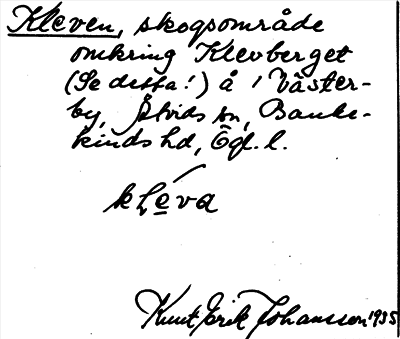 Kleven, skogsområde
omkring Klevberget
(Se detta!) å Väster-
by, Åtvids sn, Banke-
kinds hd, Ögl. l.
kleva
Knut Erik Johansson 1935